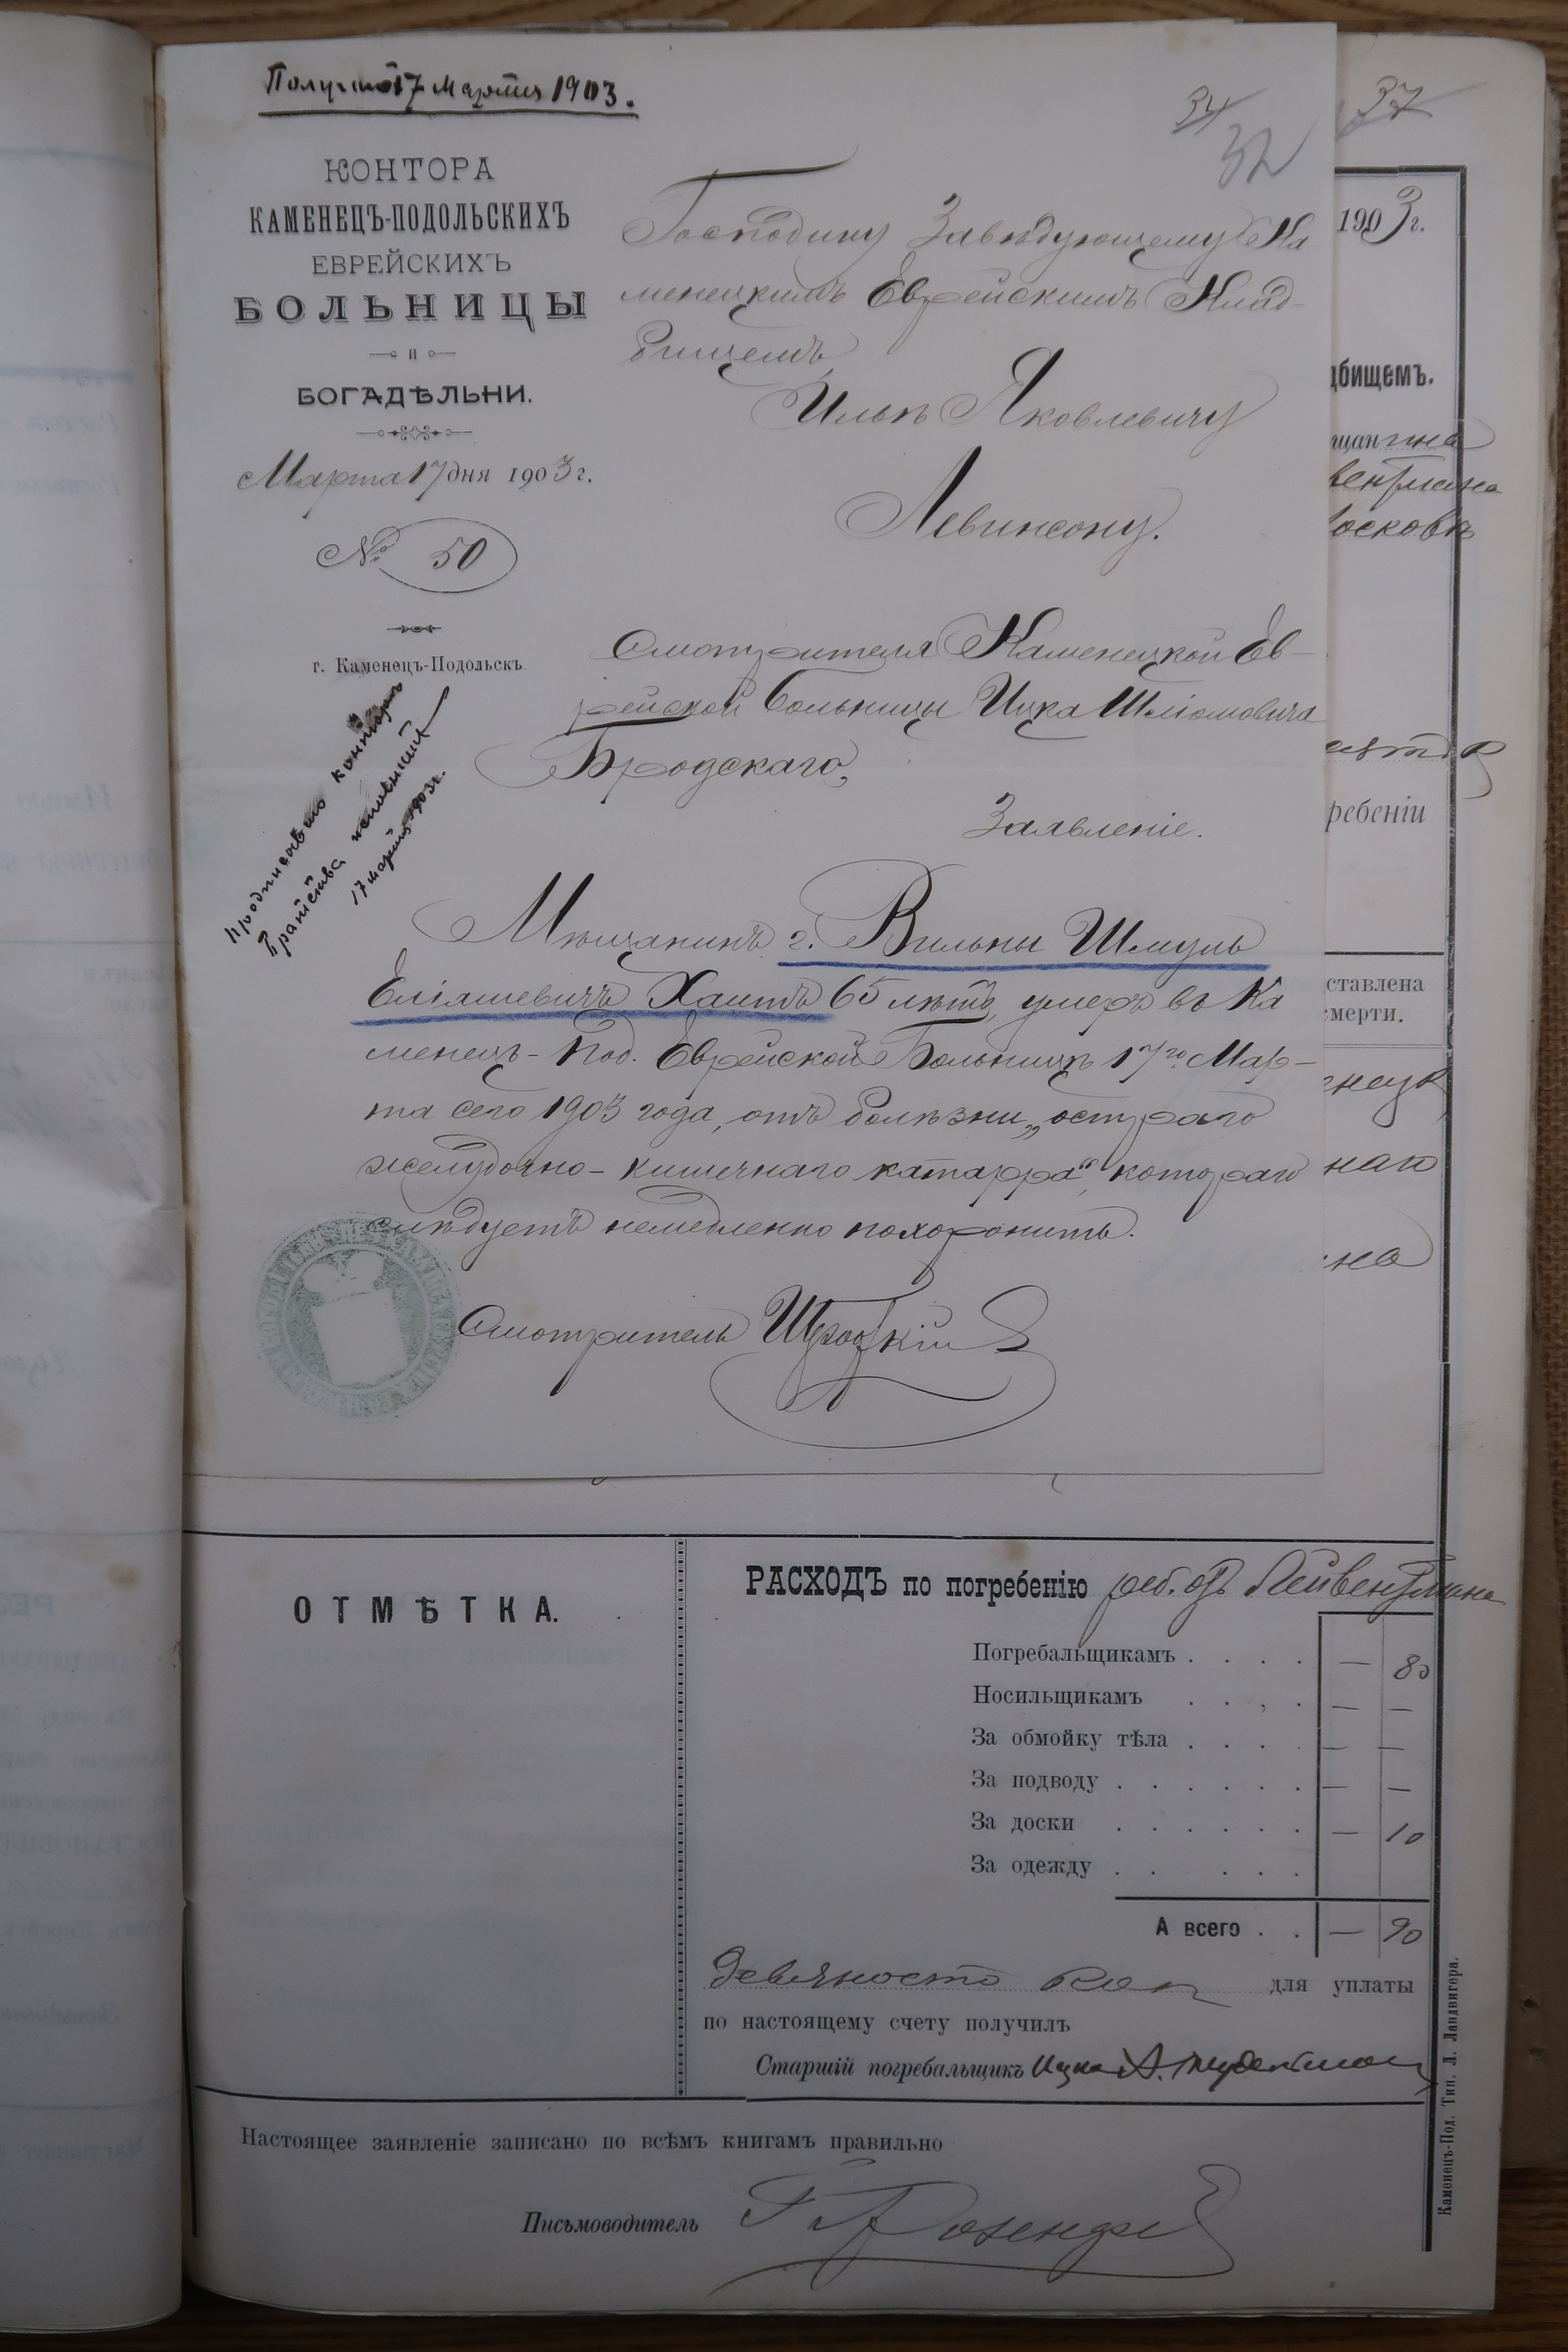 Получено 17 Марта 1903.
34
32
37
КОНТОРА
КАМЕНЕЦЪ-ПОДОЛЬСКИХЪ
ЕВРЕЙСКИХЪ
БОЛЬНИЦЫ
И
БОГАДѢЛЬНИ.
Марта 17 дня 1903 г.
№ 50
г. Каменецъ-Подольскъ
Господину Завѣдующему Ка
менецкимъ Еврейскимъ Клад-
бищемъ
Ильѣ Яковлевичу
Левинсону.
Смотрителя Каменецкой Ев-
рейской Больницы Ицка Шліомовича
Бродскаго,
Заявленіе.
Предписываю конторѣ
Братства
17 марта 1903 г.
Мѣщанинъ г. Вильны Шмуль
Еліяшевичъ Хаитъ 65 лѣтъ, умеръ въ Ка
менецъ-Под. Еврейской Больницѣ 17го Мар-
та сего 1903 года, отъ болѣзни „остраго
желудочно-кишечнаго катарра“, котораго
слѣдуетъ немедленно похоронить.
Смотритель
1903 г.
дбищемъ.
щанина
вентмана
осковѣ
ребеніи
ставлена
смерти.
наго
на
ОТМѢТКА.
РАСХОДЪ по погребенію реб. Лейвентмана
Погребальщикамъ . . . . — 80
Носильщикамъ . . . . — —
За обмойку тѣла . . . . — —
За подводу . . . . . . — —
За доски . . . . . . — 10
За одежду . . . . .
А всего . . — 90
девяносто коп для уплаты
по настоящему счету получилъ
Старшій погребальщикъ Ицко
Настоящее заявленіе записано по всѣмъ книгамъ правильно
Письмоводитель Розенфе
Каменецъ-Под. Тип. Л. Ландвигера.